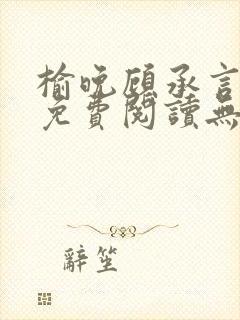 榆晚顾承言
免費閱讀無
辭笙